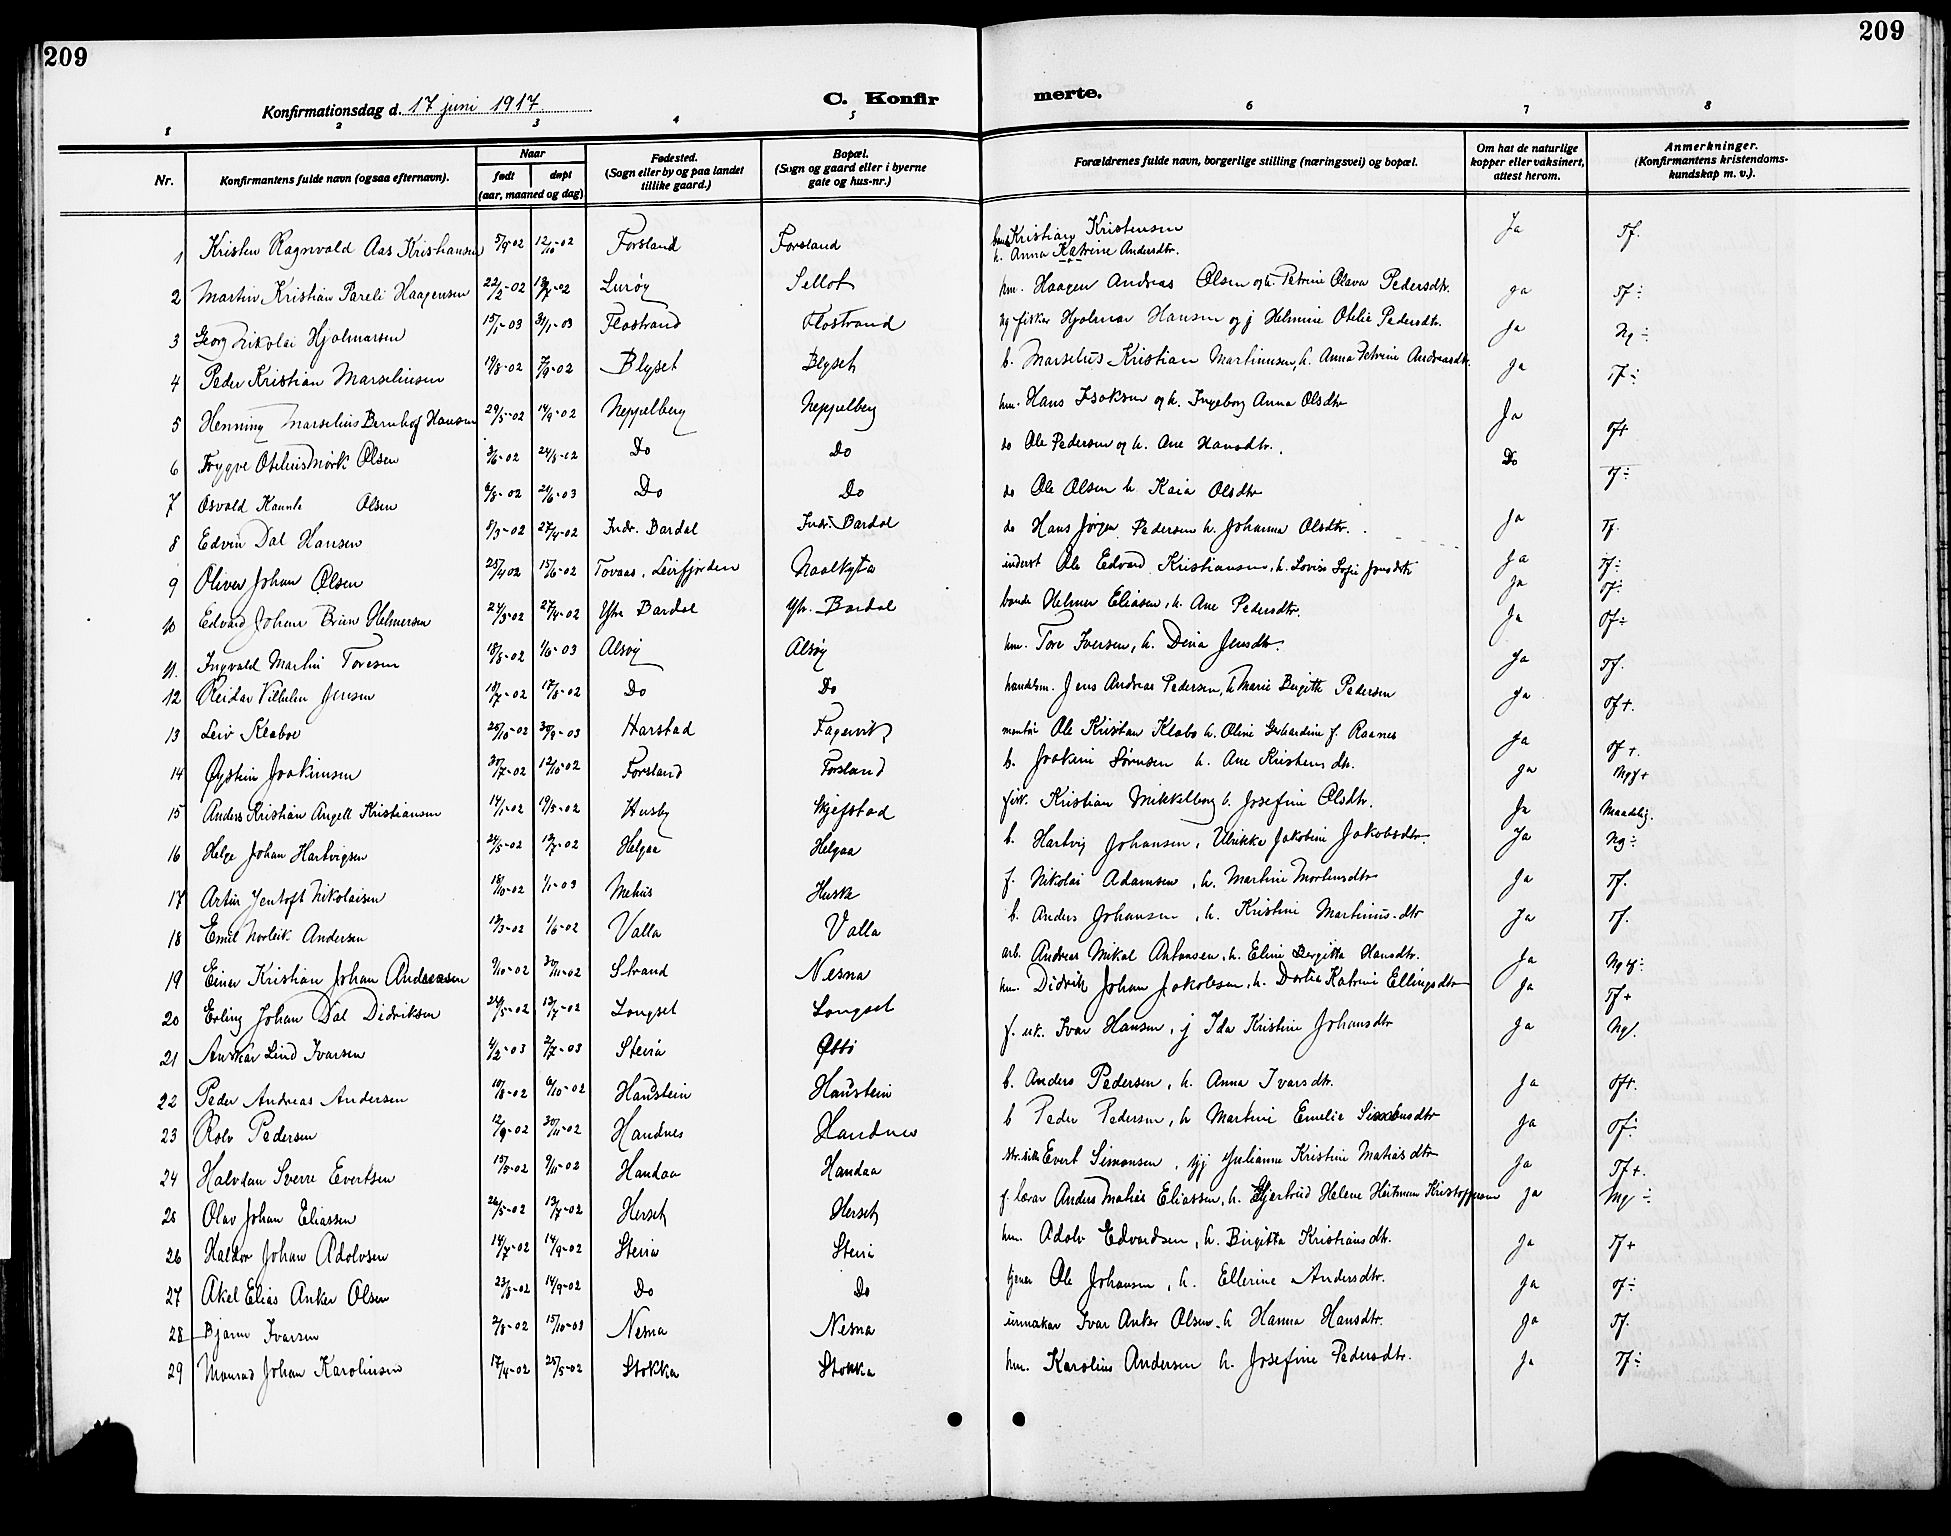 209
209
Konfirmationsdag d. 17 juni 1917
C. Konfirmerte.
1 2 3 4 5 6 7 8
Nr.
Konfirmantens fulde navn (ogsaa efternavn).
Naar
født
døpt
(aar, maaned og dag)
Fødested.
(Sogn eller by og paa landet
tillike gaard.)
Bopæl.
(Sogn og gaard eller i byerne
gate og hus-nr.)
Forældrenes fulde navn, borgerlige stilling (næringsvei) og bopæl.
Om hat de naturlige
kopper eller vaksinert,
attest herom.
Anmerkninger.
(Konfirmantens kristendoms-
kundskap m. v.).
1 Kristen Ragnvald Aas Kristiansen 5/9-02 12/10-02 Forsland Forsland Kristian Kristensen Ja Tf.
h. Anna Katrine Andersdtr.
2 Martin Kristian Pareli Haagensen 22/2-02 Lurøy Sellot hm. Haagen Andreas Olsen og h. Petrine Olava Pedersdtr. ja Tf÷
3 Georg Nikolai Hjalmarsen 15/1-03 31/1-03 Flostrand Flostrand fisker Hjalmar Hansen og j Helmine Otelie Pedersdtr. Ja Ng÷
4 Peder Kristian Marseliussen 19/8-02 7/9-02 Blyset Blyset b. Marselius Kristian Martinusen, h. Anna Petrine Andreasdtr. Ja Tf÷
5 Henning Marselius Bernhof Hansen 29/5-02 14/9-02 Neppelberg Neppelberg hm. Hans Isaksen og h. Ingeborg Anna Olsdtr Ja Tf+
6 Trygve Otelius Mørk Olsen 3/6-02 24/8-02 Do Do do Ole Pedersen og h. Ane Hansdtr. Do Tf÷
7 Osvald Kaunle Olsen 6/8-02 21/6-03 Do Do do Ole Olsen h. Kaia Olsdtr Ja Tf.
8 Edvin Dal Hansen 8/3-02 27/4-02 Indr. Bardal Indr. Bardal do Hans Jørgen Pedersen h. Johanna Olsdtr. Ja Tf÷
9 Oliver Johan Olsen 25/4 02 15/6-02 Tovaas, Leirfjorden Naalkyta inderst Ole Edvard Kristiansen, h. Lovise Sofie Jensdtr Ja Tf÷
10 Edvard Johan Brun Helmersen 24/3-02 27/4-02 Ytre Bardal Ytr. Bardal bonde Helmer Eliasen, h. Ane Pedersdtr. Ja Tf÷
11. Ingvald Martin Toresen 18/8-02 1/6-03 Alsøy Alsøy hm. Tore Iversen, h. Dina Jensdtr. Ja Tf.
12 Reidar Vilhelm Jensen 18/7-02 17/8-02 Do Do handelsm. Jens Andreas Pedersen, h Marie Birgitte Pedersen Ja Tf+.
13 Leiv Klaboe 20/10-02 30/9-03 Harstad Fagervik Ole Kristian Klabo h. Oline Gerhardine f. Raanes Ja Tf+.
14 Øystein Joakimsen 30/7-02 12/10-02 Forsland Forsland b. Joakim Sørensen h. Ane Kristensdtr. ja Mgf+
15 Anders Kristian Angell Kristiansen 14/1-02 19/5-02 Husby Skjefstad fisk. Kristian Mikkelborg h. Josefine Olsdtr. Ja Maadelig.
16 Helge Johan Hartvigsen 24/5-02 13/7-02 Helgaa Helgaa b. Hartvig Johansen, Ulrikke Jakobine Jakobsdtr. Ja Ng÷
17 Artur Jentoft Nikolaisen 18/10-02 1/1-03 Mehus Huska f. Nikolai Adamsen, h. Martine Mortensdtr Ja Tf.
18 Emil Norleik Andersen 13/3-02 1/6-02 Valla Valla b. Anders Johansen, h. Kristine Martinus.dtr Ja Tf.
19 Einar Kristian Johan Andreassen 9/10-02 30/11-02 Strand Nesna arb. Andreas Mikal Antonsen, h. Eline Bergitta Hansdtr. Ja Ng tf÷
20 Erling Johan Dal Didriksen 24/5-02 13/7-02 Longset Longset hm. Didrik Johan Jakobsen, h. Dortea Katrine Ellingsdtr Ja Tf+
21 Anskar Lind Ivarsen 4/2-03 2/7-03 Steira f. ek. Ivar Hansen, j Ida Kristine Johansdtr Ja Mgf.
22 Peder Andreas Andersen 10/8-02 6/10-02 Haustein Haustein b. Anders Pedersen, h. Anna Ivarsdtr. Ja Tf+.
23 Rolv Pedersen 12/9-02 30/11-02 Handnes Handnes b Peder Pedersen, h Martine Emelie Simonsdtr Ja Tf÷
24 Halvdan Sverre Evertsen 15/5-02 9/11-02 Handaa Handaa Evert Simonsen, Julianne Kristine Matiasdtr Ja Tf+.
25 Olav Johan Eliassen 26/5-02 13/7-02 Herset Herset f. lærar Anders Matias Eliassen, h. Hjertrud Helene Heitman Kristoffersen ja Mgf÷
26 Haldor Johan Adolvsen 14/7-02 14/9-02 Steira Steira hm. Adolv Edvardsen, h. Birgitta Kristiansdtr. ja Tf+
27 Aksel Elias Anker Olsen 23/8-02 14/9-02 Do Do tjener Ole Johansen, h. Ellerine Andersdtr. ja Tf÷
28 Bjarne Ivarsen 2/8-02 15/10-03 Nesna Nesna urmakar Ivar Anker Olsen h Hanna Hansdtr. ja Tf.
29 Monrad Johan Karolinsen 17/4-02 25/5-02 Stokka Stokka hm. Karolius Andersen h. Josefine Pedersdtr. Ja Tf÷